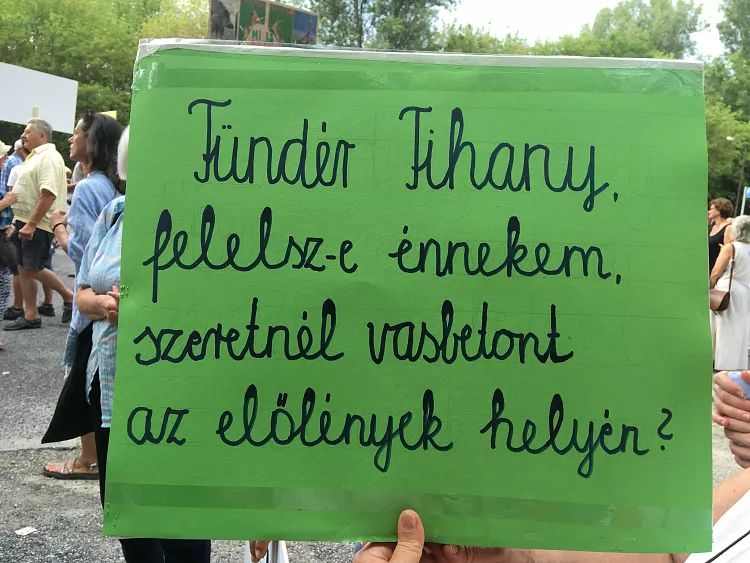 Tündér Tihany,
felelsz-e énnekem,
szeretnél vasbetont
az előlények helyén?